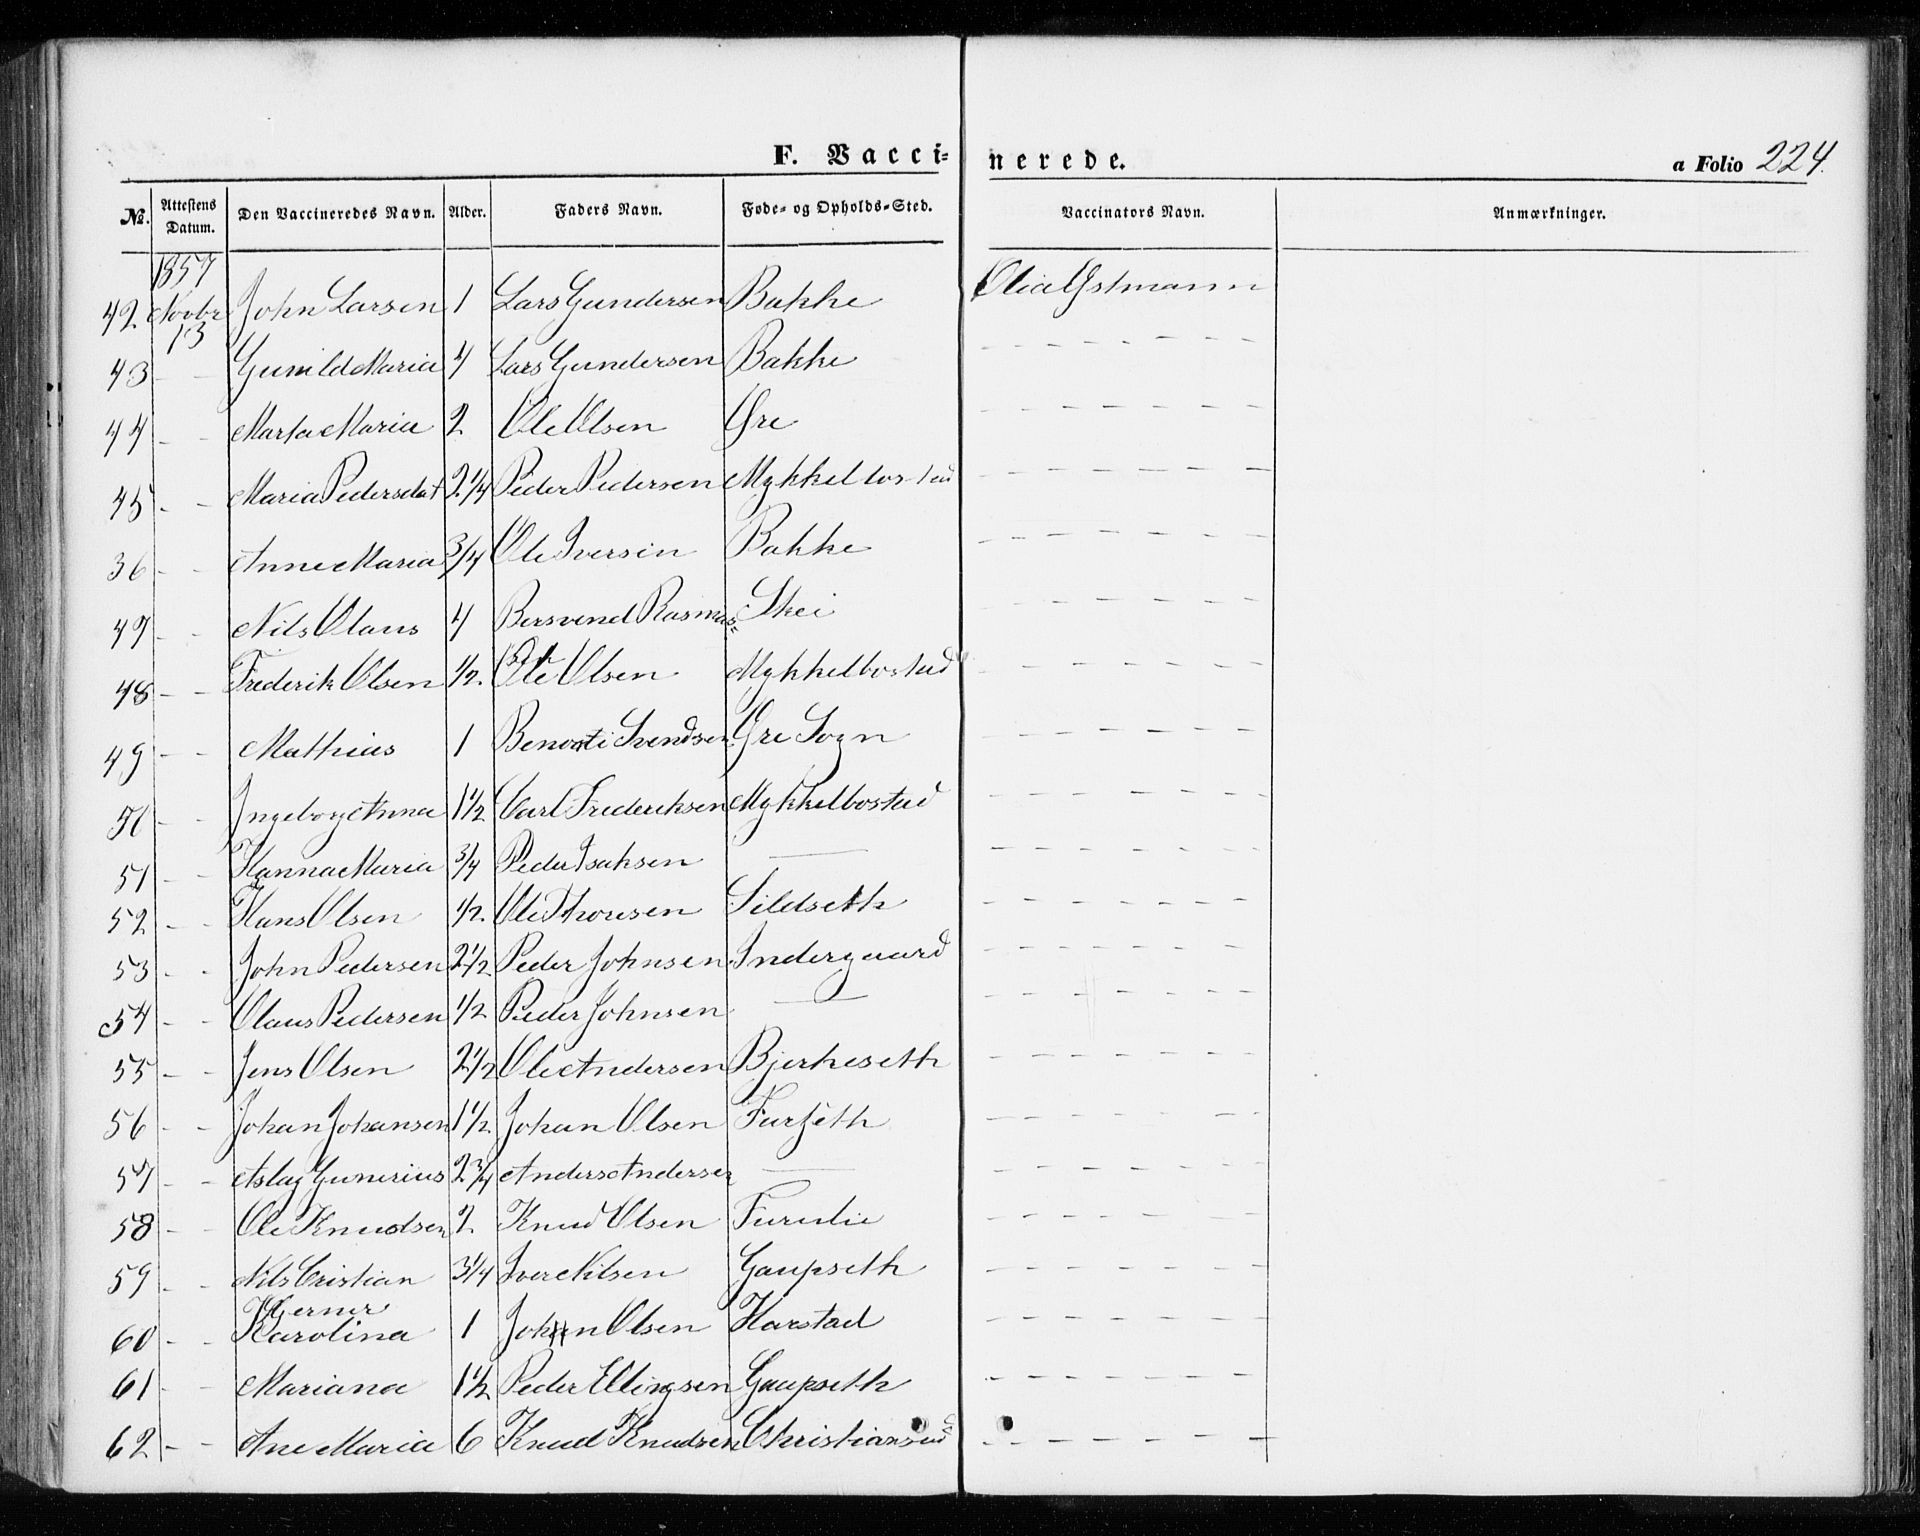 F. Vaccinerede.
a Folio 224.
No. Attestens Datum. Den Vaccineredes Navn. Alder. Faders Navn. Føde- og Opholds-Sted. Vaccinators Navn. Anmærkninger.
1857
42 Novbr 13 John Larsen 1 Lars Gundersen Bakke Olia Østmann
43 - - Gunild Maria 4 Lars Gundersen Bakke - - - - - -
44 - - Marta Maria 2 Ole Olsen Øre - - - - - -
45 - - Maria Pedersdat 2 1/4 Peder Pedersen Mykkelbostad - - - - - -
36 - - Anne Maria 3/4 Ole Iversen Bakke - - - - - -
47 - - Nils Olaus 4 Bersvend Rasmus- Skei - - - - - -
48 - - Frederik Olsen 1/2 Ole Olsen Mykkelbostad - - - - - -
49 - - Mathias 1 Benonti Svendsen Øre Sogn - - - - - -
- - Ingeborg Anna 1 1/2 Carl Frederiksen Mykkelbostad - - - - - -
51 - - Hanna Maria 3/4 Peder Isaksen — - - - - - -
52 - - Hans Olsen 1/2 Ole Thoresen Sildseth - - - - - -
53 - - John Pedersen 2 1/2 Peder Johnsen Indergaard - - - - - -
54 - - Olaus Pedersen 1/2 Peder Johnsen — - - - - - -
55 - - Jens Olsen 2 1/2 Ole Andersen Bjerkeseth - - - - - -
56 - - Johan Johansen 1 1/2 Johan Olsen Furseth - - - - - -
57 - - Aslag Gunerius 2 3/4 Anders Andersen — - - - - - -
58 - - Ole Knudsen 2 Knud Olsen Furulie - - - - - -
59 - - Nils Cristian 3 1/4 Iver Nilsen Gaupseth - - - - - -
60 - - Karolina 1 Johan Olsen Harstad - - - - - -
61 - - Mariana 1 1/2 Peder Ellingsen Gaupseth - - - - - -
62 - - Ane Maria 6 Knud Knudsen Christiansund - - - - - -